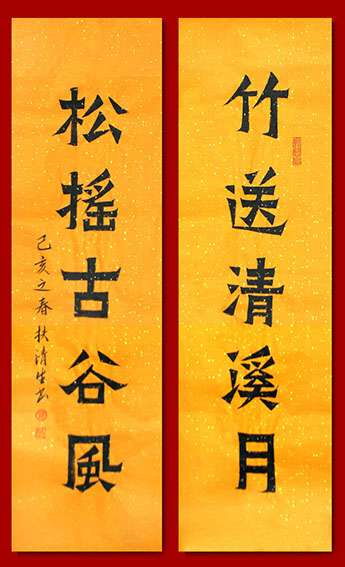 竹送清溪月
松摇古谷風
己亥之春扶清生书